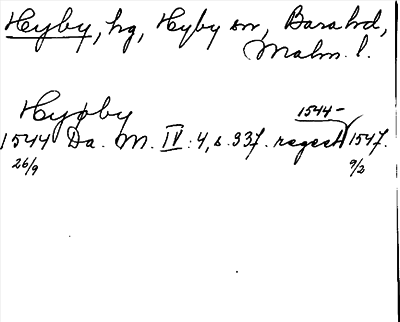 Hyby, hg, Hyby sn, Bara hd,
Malm. l.
Hyøby
1544-
1544 Da. M. IV: 4, s. 337. regest 1547.
26/9 9/2